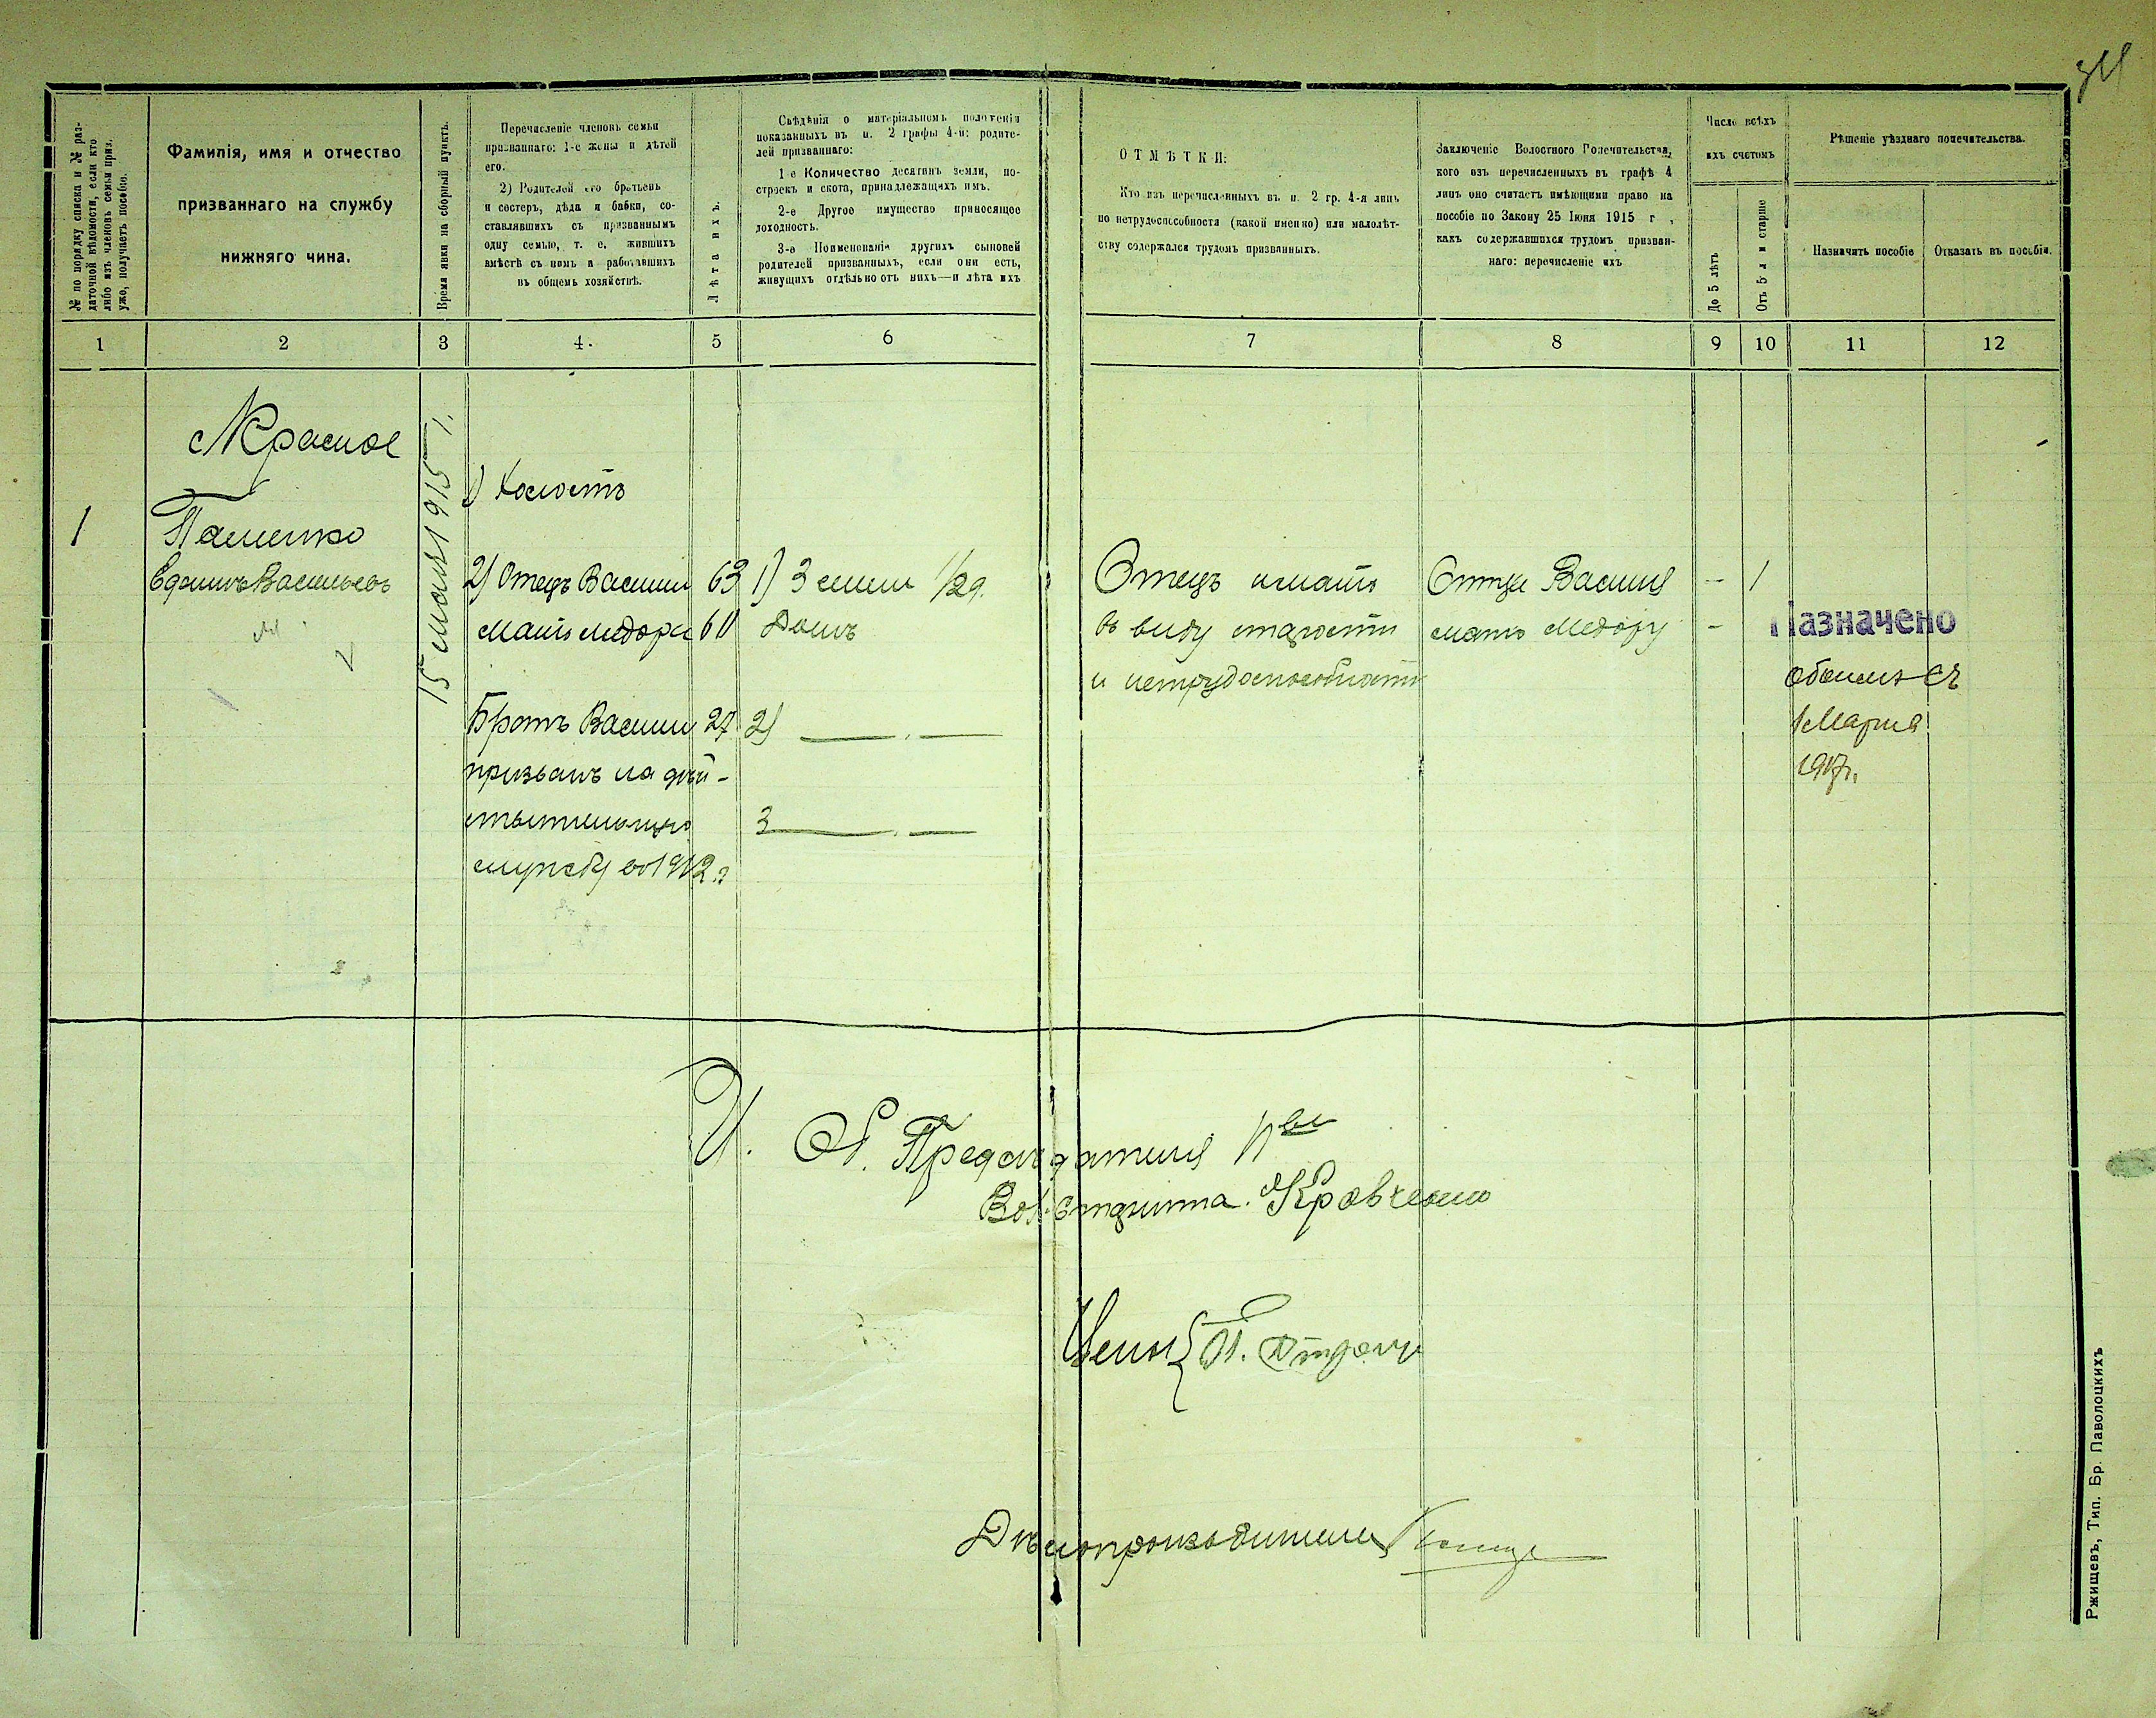 34
№ по порядку списка и № раз-
даточной вѣдомости, если кто
либо изъ членовъ семьи приз.
уже, получаетъ пособіе.
Фамилія, имя и отчество
призваннаго на службу
нижняго чина.
Время явки на сборный пунктъ.
Перечисленіе членовъ семьи
призваннаго: 1-е жены и дѣтей
его.
2) Родителей его братьевъ
и сестеръ, дѣда и бабки, со-
ставлявшихъ съ призваннымъ
одну семью, т. е. жившихъ
вмѣстѣ съ нимъ и работавшихъ
въ общемъ хозяйствѣ.
Лѣта ихъ.
Свѣдѣнія о матеріальномъ положеніи
показанныхъ въ п. 2 графы 4-й: родите-
лей призваннаго:
1-е Количество десятинъ земли, по-
строекъ и скота, принадлежащихъ имъ.
2-е Другое имущество приносящее
доходность.
3-е Поименованія другихъ сыновей
родителей призванныхъ, если они есть,
живущихъ отдѣльно отъ нихъ—и лѣта ихъ
ОТМѢТКИ:
Кто изъ перечисленныхъ въ п. 2 гр. 4-я лицъ
по нетрудоспособности (какой именно) или малолѣт-
ству содержался трудомъ призванныхъ.
Заключеніе Волостного Попечительства,
кого изъ перечисленныхъ въ графѣ 4
лицъ оно считаетъ имѣющими право на
пособіе по Закону 25 Іюня 1915 г.,
какъ содержавшихся трудомъ призван-
наго: перечисленіе ихъ
Число всѣхъ
ихъ счетомъ
До 5 лѣтъ
Отъ 5 л и старше
Рѣшеніе уѣзднаго попечительства.
Назначить пособіе
Отказать въ пособіи.
1 2 3 4. 5 6 7 8 9 10 11 12
Красное
1
15 мая 1915 г.
1) Холостъ
2) Отецъ Василий 63 1) Земли 1/2 д.
Мать 60 Домъ
Братъ Василий 27 2) —
призванъ на дѣй-
ствительную 3 —
службу въ 1912 г
Отецъ и мать
въ виду старости
и нетрудоспособности
Отца Василія — 1
мать —
Назначено
обоимъ съ
1 Марта
1917 г.
И. О. Предсѣдателя
Вол. Кравченко
Члены
Дѣлопроизводитель
Ржищевъ, Тип. Бр. Паволоцкихъ